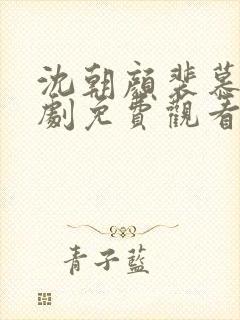 沈朝顏裴慕
劇免費觀看
青子藍